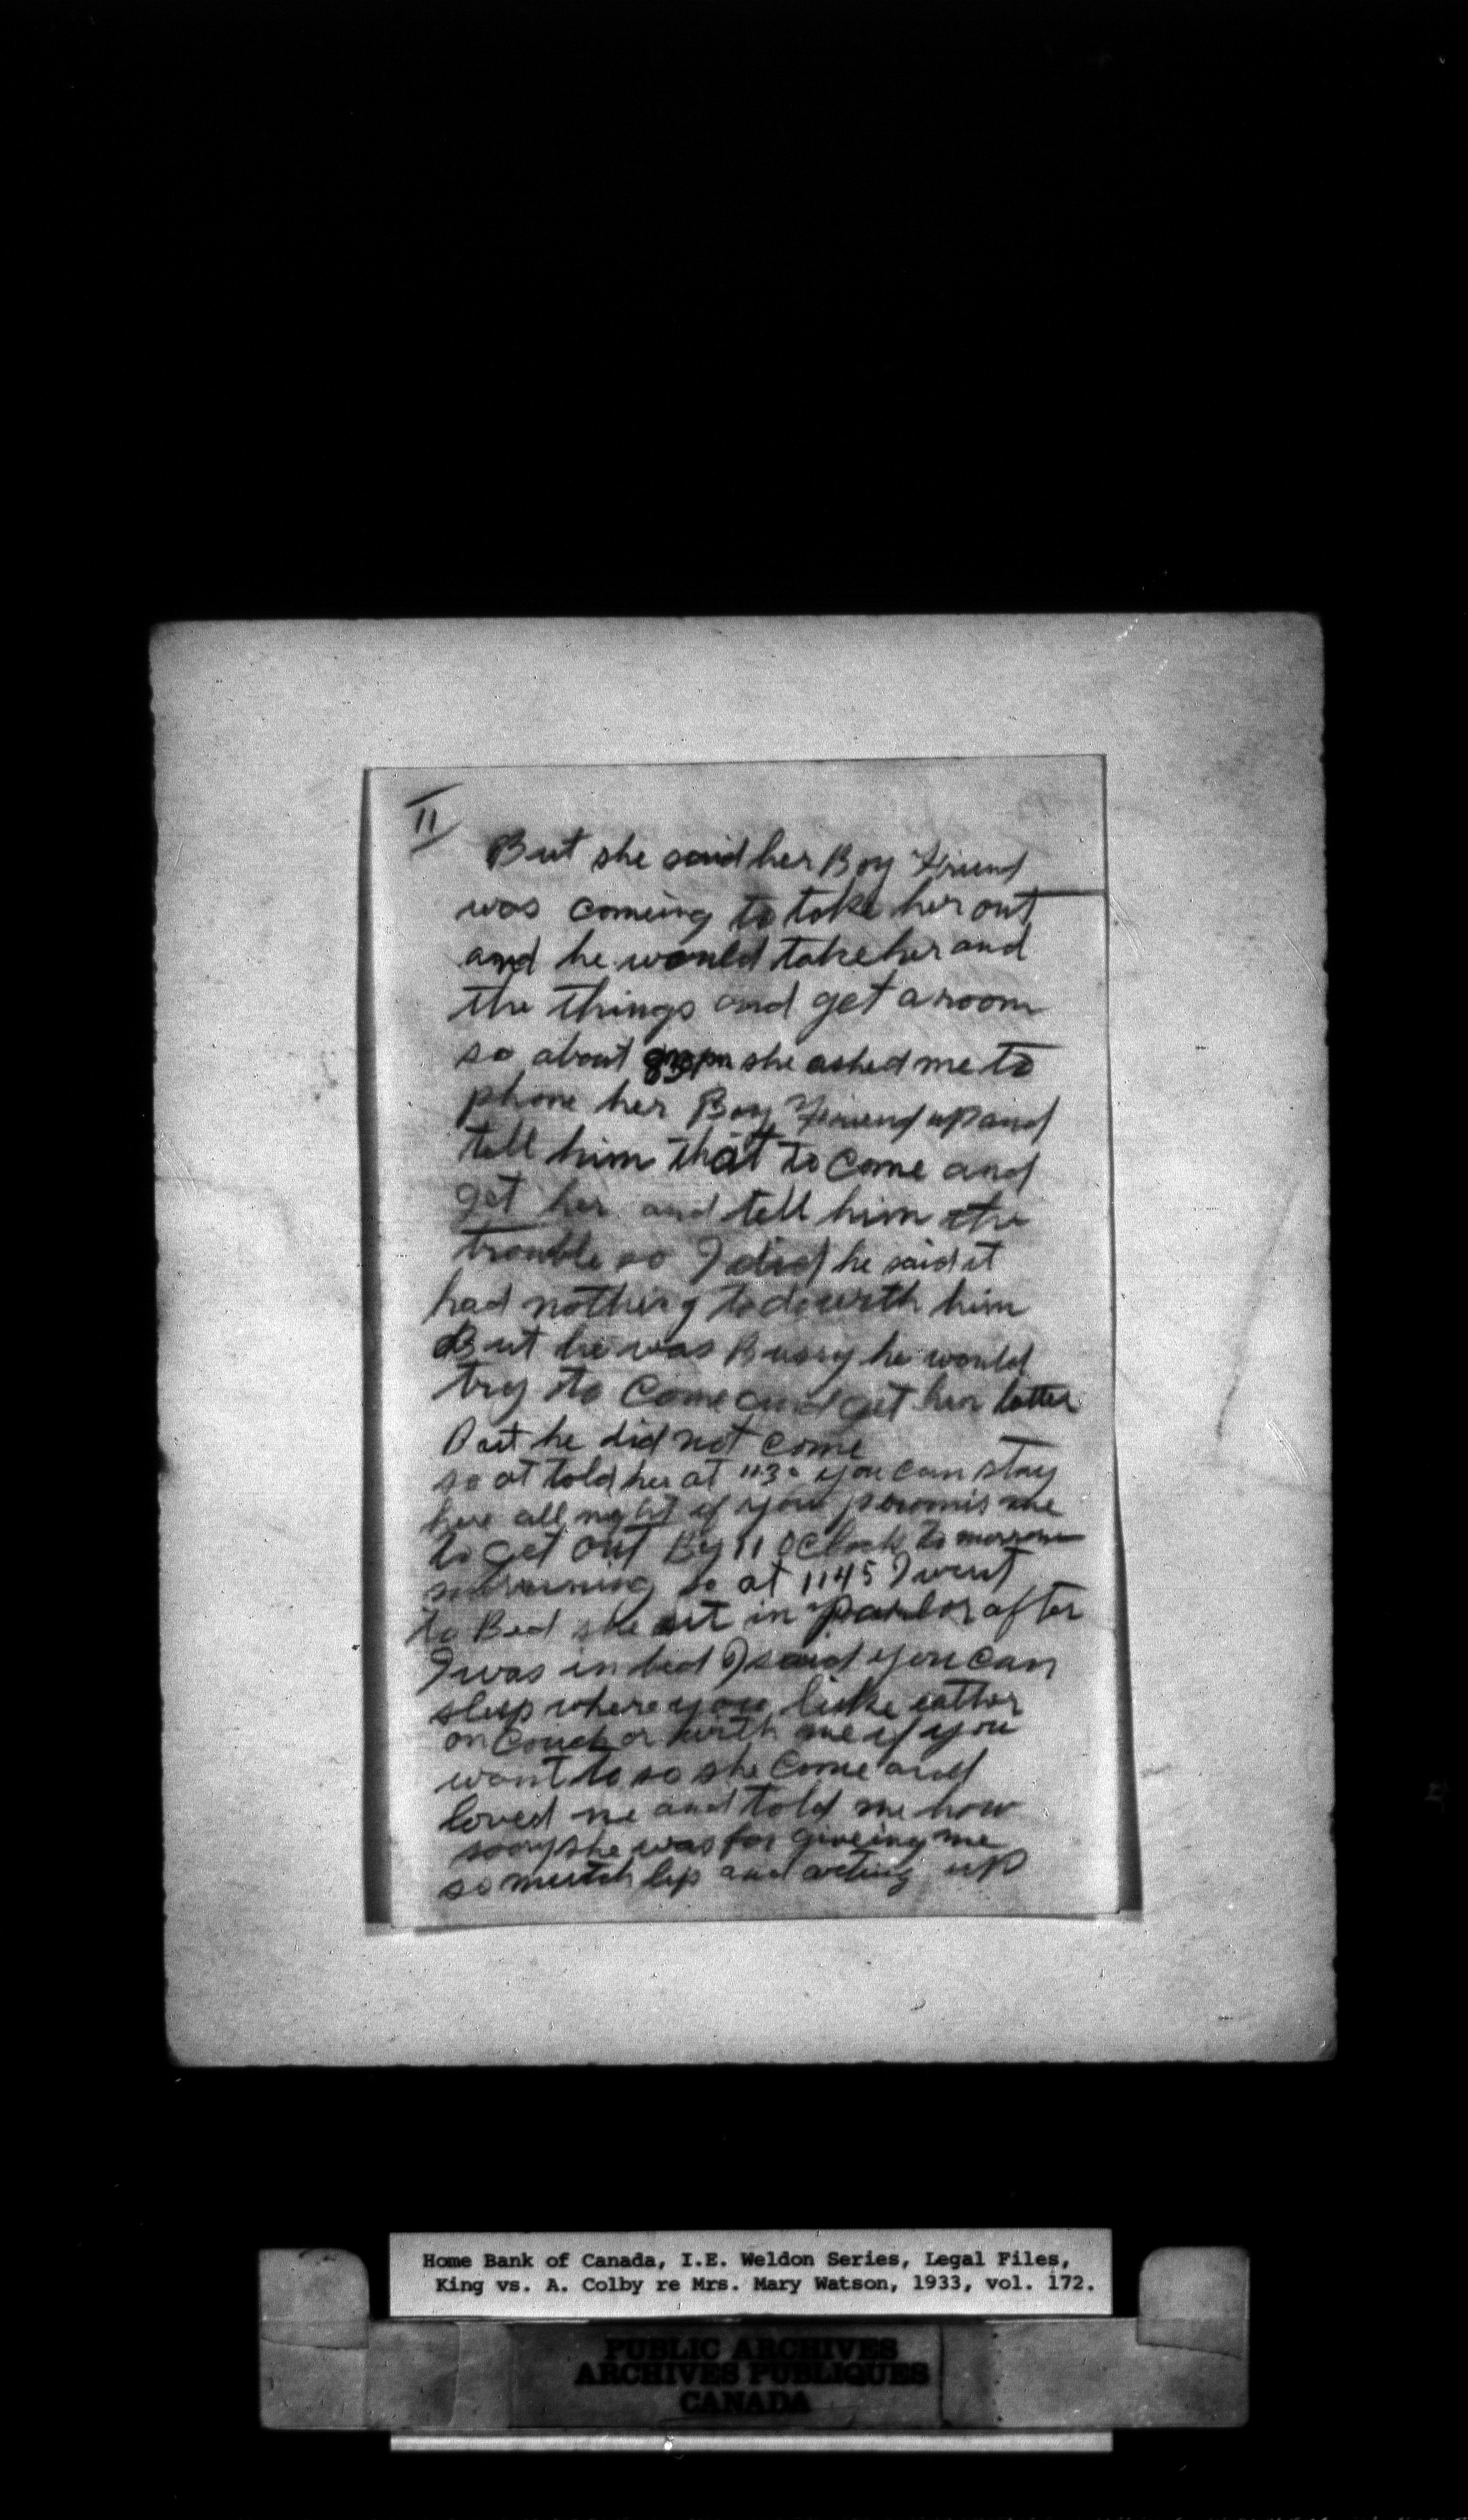 II
But she said her Boy Friend
was comeing to take her out
and he would take her and
the things and get a room
so about she asked me to
phone her Boy Friend up and
tell him that to come and
get her and tell him the
trouble so I did he said it
had nothing to do with him
But he was Bussy he would
try to come and get her latter
But he did not come
so at told her at 1130 you can stay
here all night if you promis me
to get out By 11 oClock To morrow
morning so at 1145 I went
to Bed she set in Parlor after
I was in bed I said you can
sleep where you like eather
on Couch or with me if you
want to so she come and
loved me and told me how
sory she was for giveing me
so mutch lip and acting up
Home Bank of Canada, I.E. Weldon Series, Legal Files,
King vs. A. Colby re Mrs. Mary Watson, 1933, vol. 172.
PUBLIC ARCHIVES
ARCHIVES PUBLIQUES
CANADA